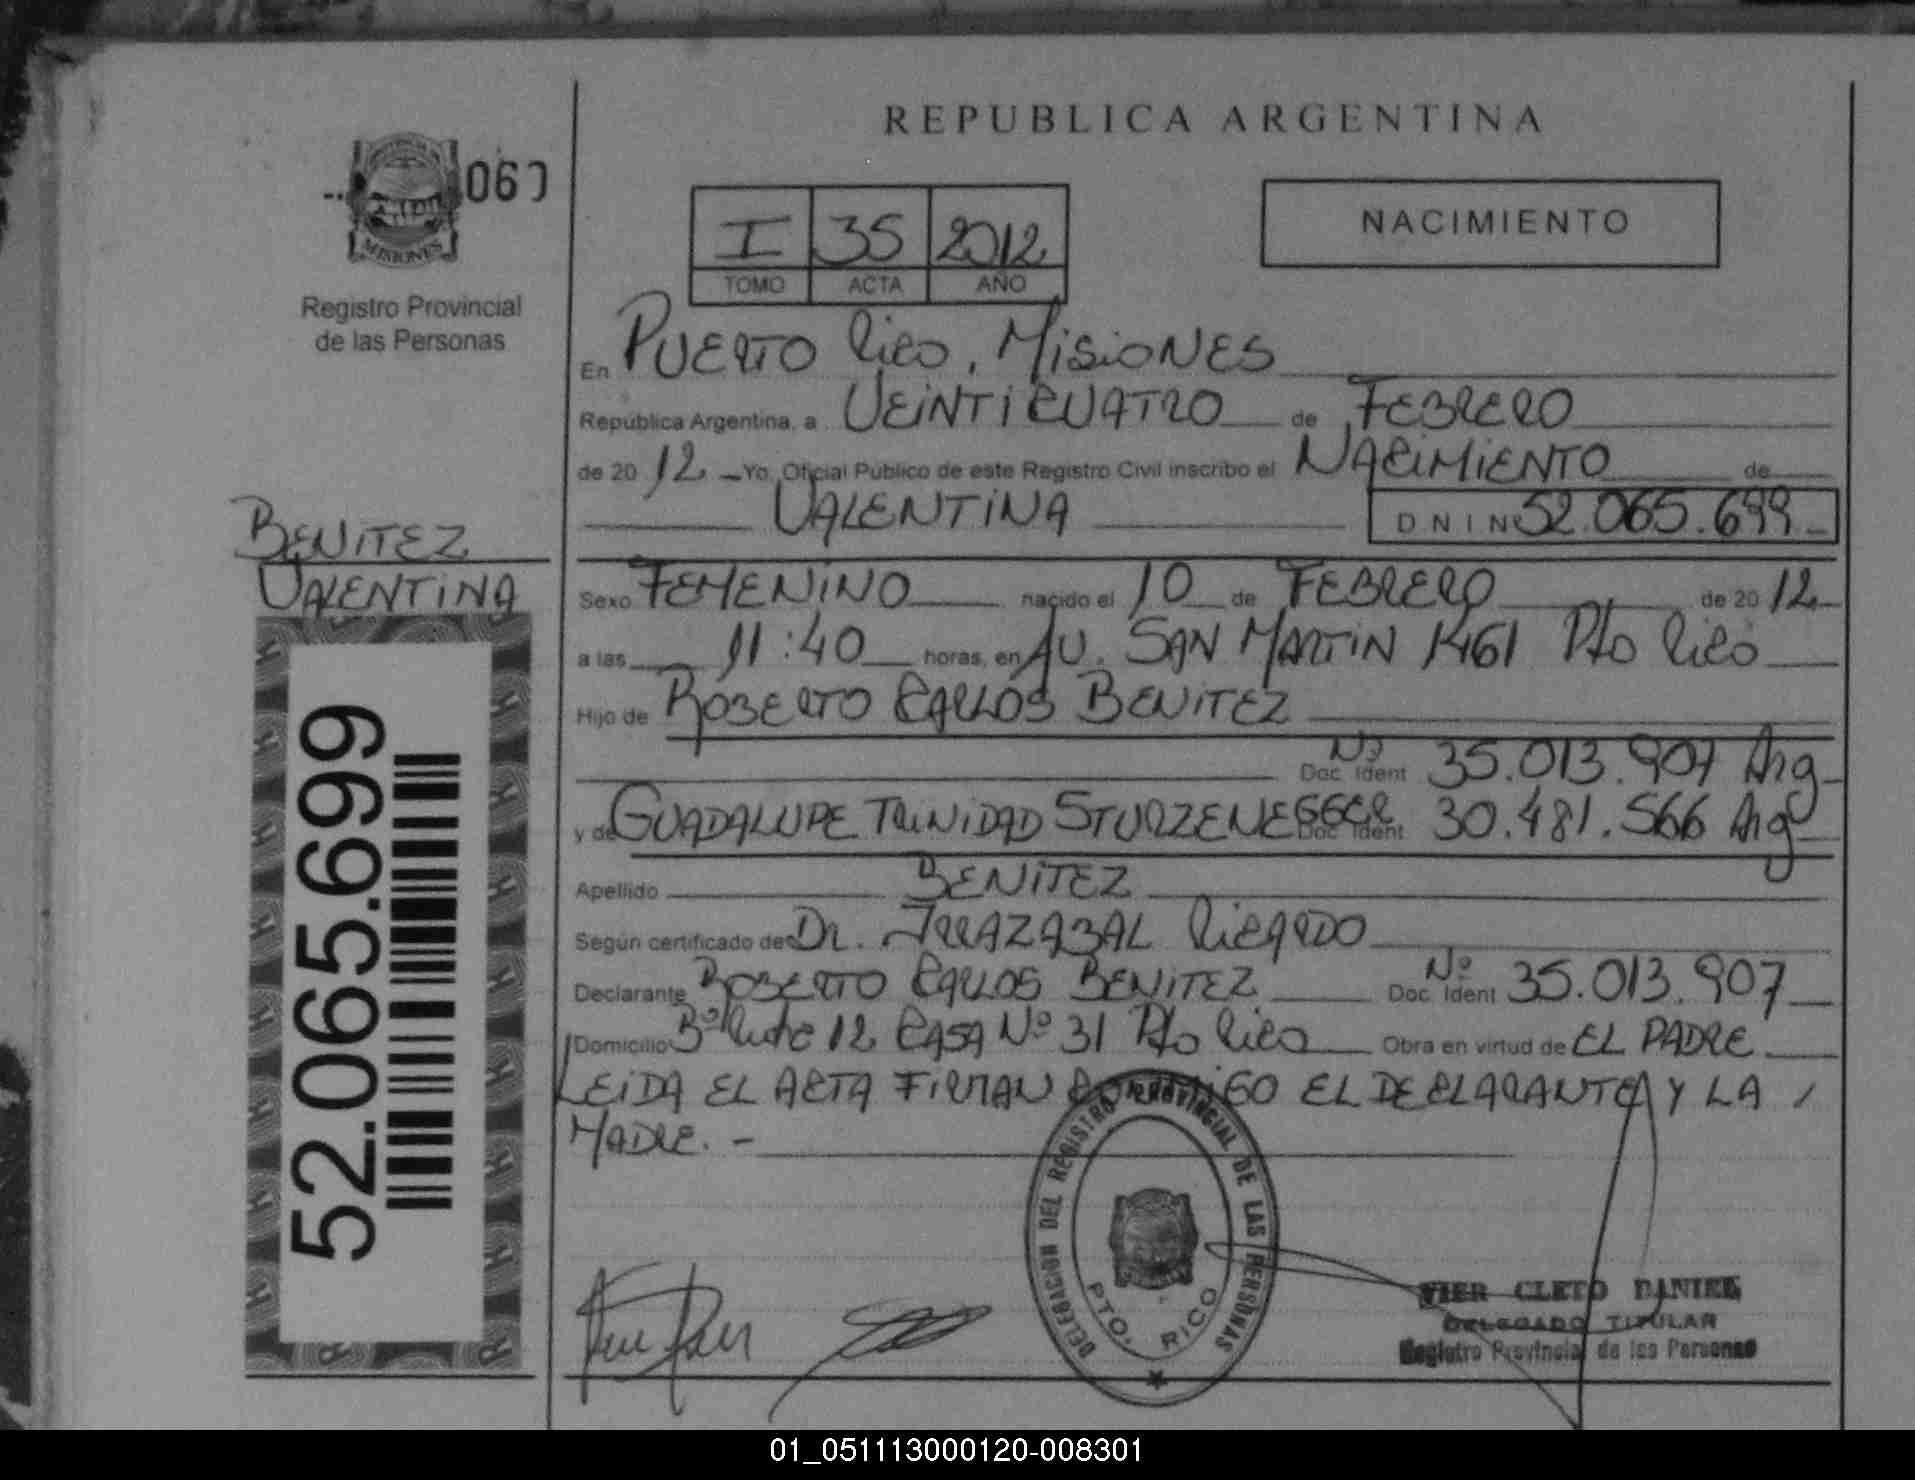 REPUBLICA ARGENTINA
060
MISIONES
Registro Provincial
de las Personas
I 35 2012
TOMO ACTA AÑO
NACIMIENTO
En PUERTO Rico, MISIONES
República Argentina, a VEINTICUATRO de FEBRERO
de 20 12 Yo, Oficial Público de este Registro Civil inscribo el NACIMIENTO de
VALENTINA DNI Nº 52.065.699
BENITEZ
VALENTINA
Sexo FEMENINO nacido el 10 de FEBRERO de 20 12
a las 11:40 horas, en AV. SAN MARTIN 1461 Pto Rico
Hijo de ROBERTO CARLOS BENITEZ
Nº
Doc. Ident 35.013.907 Arg
y de GUADALUPE TRINIDAD STURZENEGGER Doc. Ident 30.481.566 Arg
Apellido BENITEZ
Según certificado de Dr. IRRAZABAL RICARDO
Declarante ROBERTO CARLOS BENITEZ Nº Doc. Ident 35.013.907
Domicilio Bº Ruta 12 CASA Nº 31 Pto Rico Obra en virtud de EL PADRE
LEIDA EL ACTA FIRMAN CONMIGO EL DECLARANTE Y LA
MADRE. -
52.065.699
DELEGACION DEL REGISTRO PROVINCIAL DE LAS PERSONAS
PTO. RICO
VIER CLETO DANIEL
DELEGADO TITULAR
Registro Provincial de las Personas
01_051113000120-008301